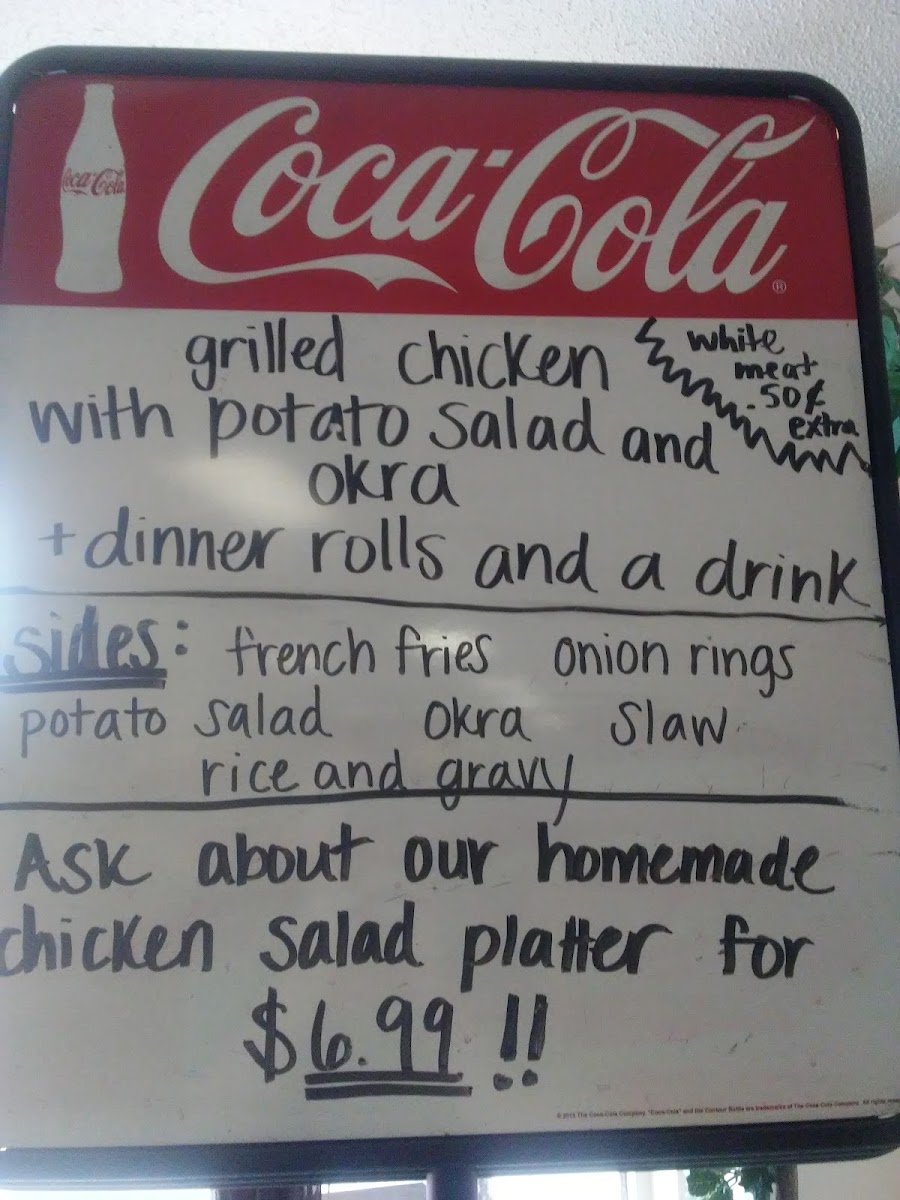 Coca-Cola
Coca-Cola®
grilled chicken
white
meat
.50¢
extra
with potato salad and
okra
+ dinner rolls and a drink
sides: french fries onion rings
potato salad okra slaw
rice and gravy
Ask about our homemade
chicken salad platter for
$6.99 !!
© 2015 The Coca-Cola Company. "Coca-Cola" and the Contour Bottle are trademarks of The Coca-Cola Company. All rights